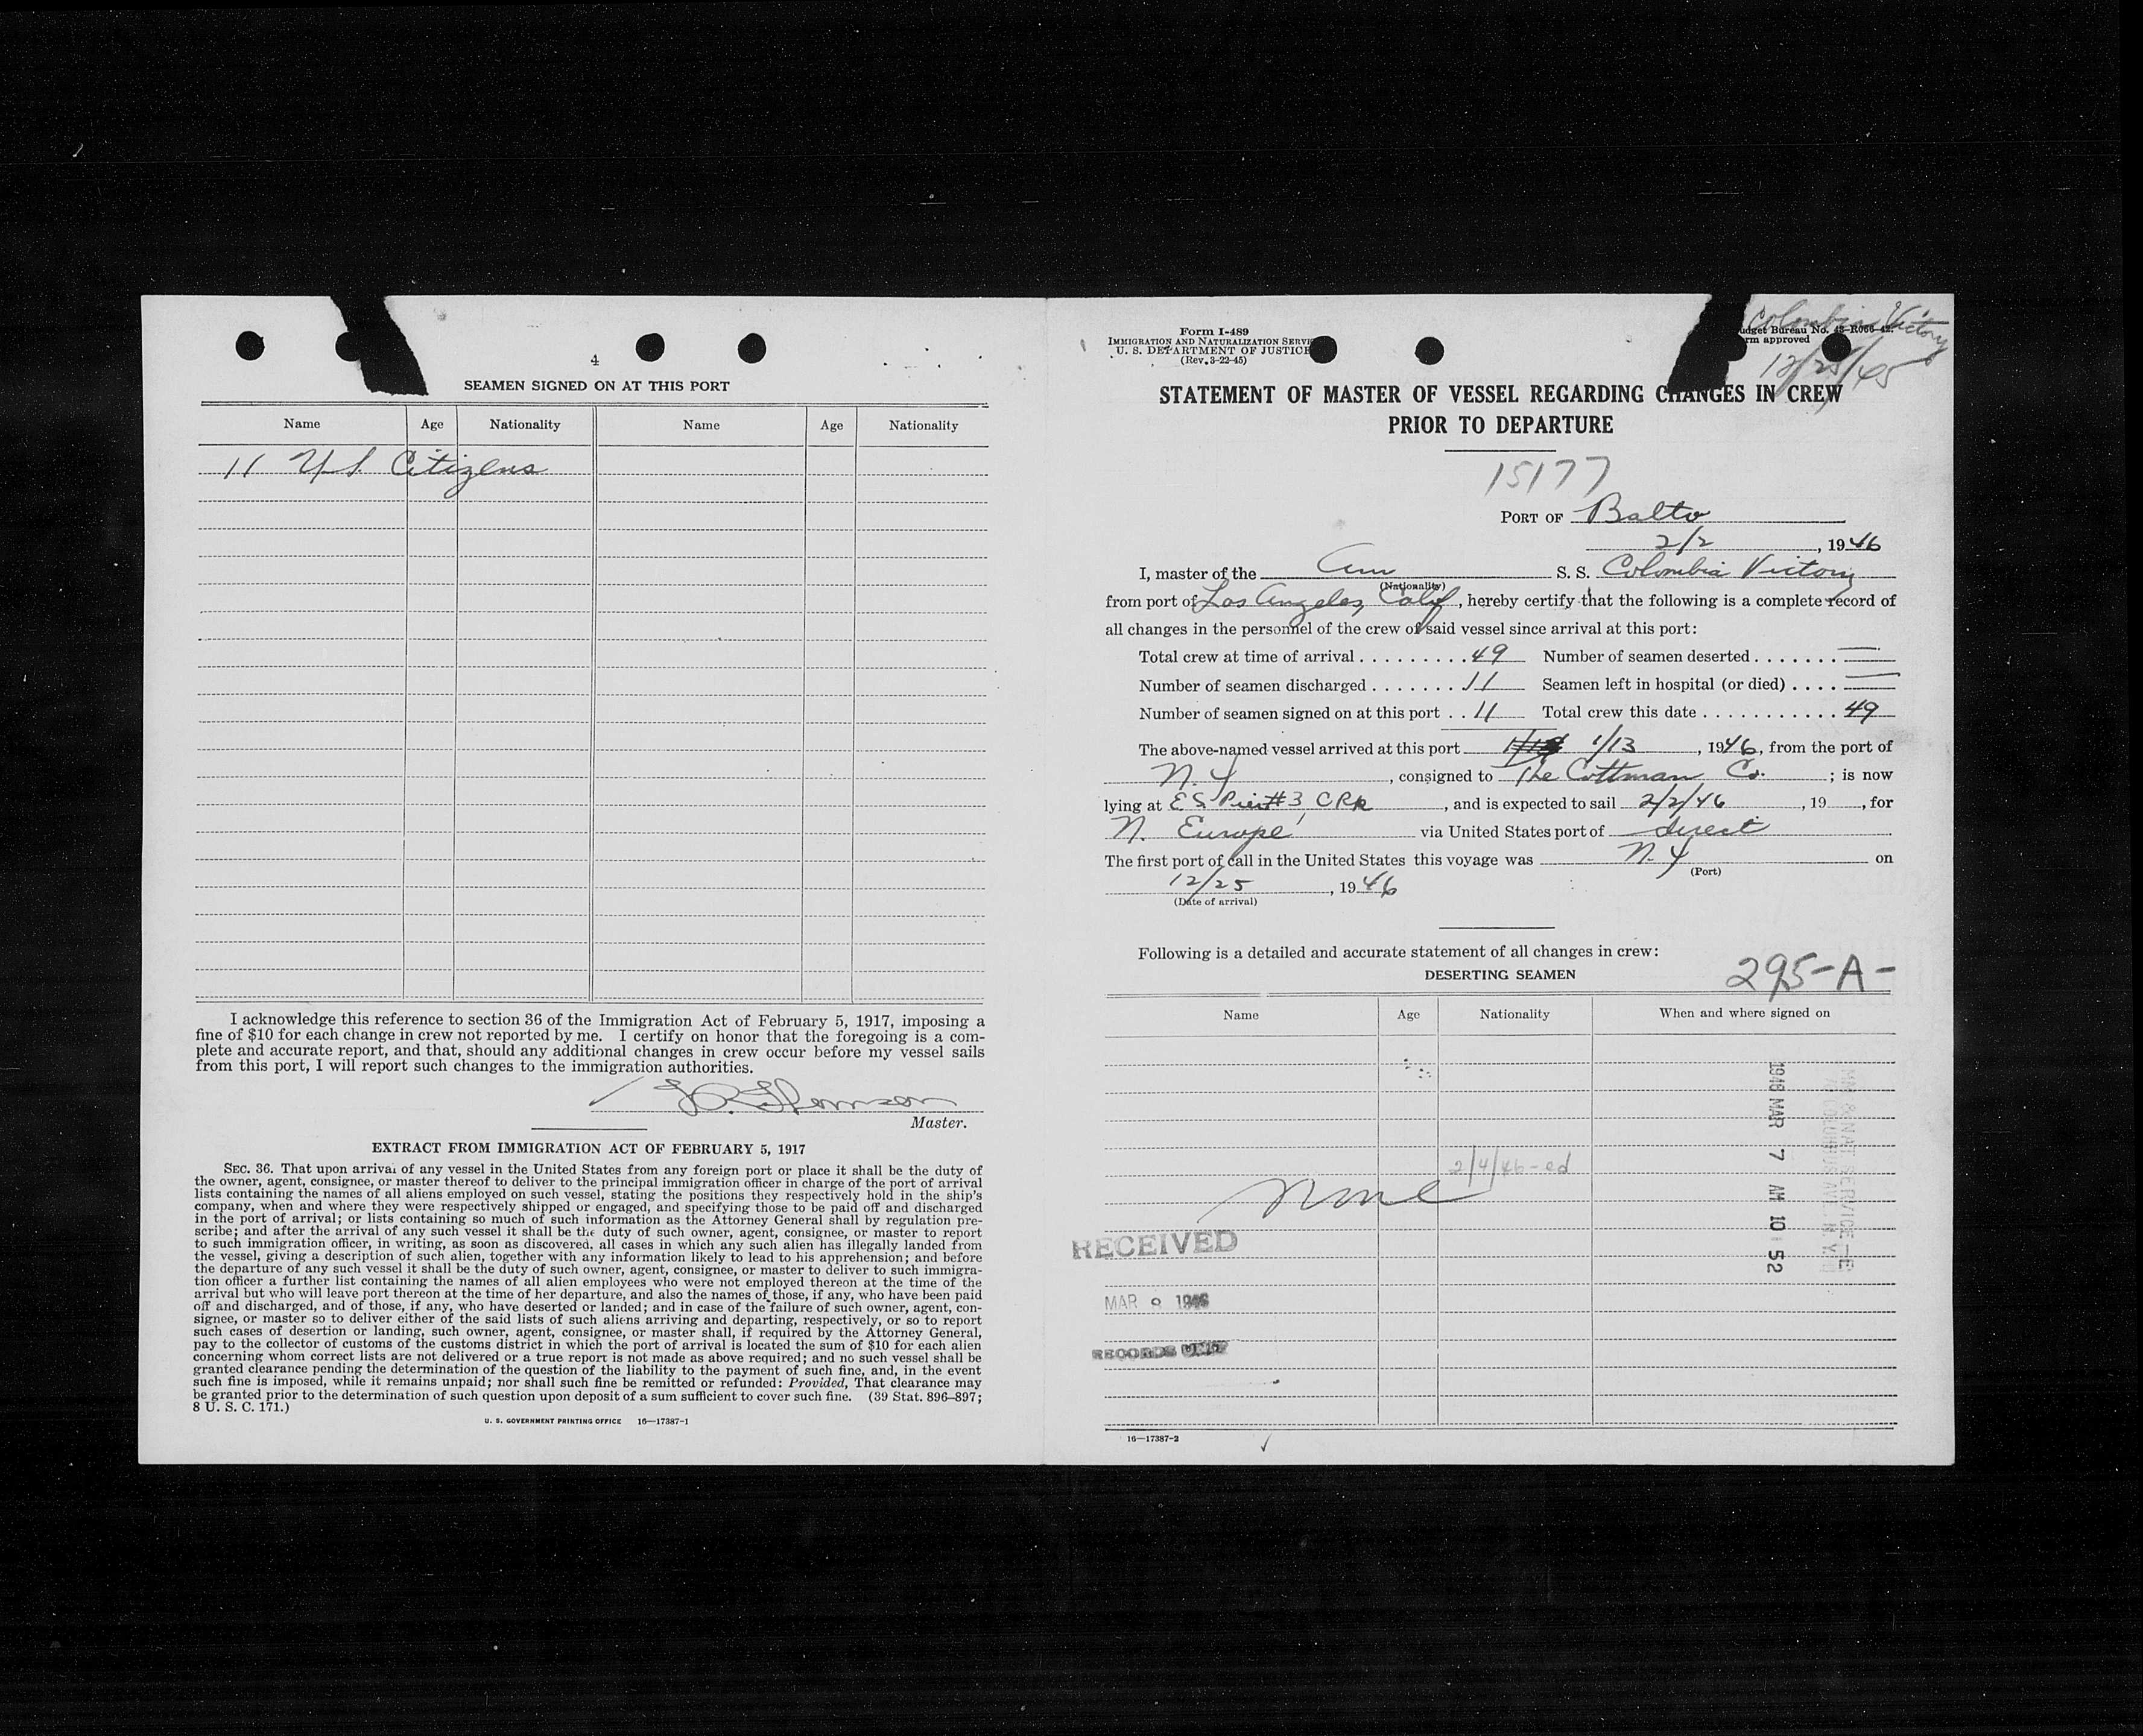 4
SEAMEN SIGNED ON AT THIS PORT
Name Age Nationality Name Age Nationality
11 U.S. Citizens
I acknowledge this reference to section 36 of the Immigration Act of February 5, 1917, imposing a
fine of $10 for each change in crew not reported by me. I certify on honor that the foregoing is a com-
plete and accurate report, and that, should any additional changes in crew occur before my vessel sails
from this port, I will report such changes to the immigration authorities.
Master.
EXTRACT FROM IMMIGRATION ACT OF FEBRUARY 5, 1917
SEC. 36. That upon arrival of any vessel in the United States from any foreign port or place it shall be the duty of
the owner, agent, consignee, or master thereof to deliver to the principal immigration officer in charge of the port of arrival
lists containing the names of all aliens employed on such vessel, stating the positions they respectively hold in the ship's
company, when and where they were respectively shipped or engaged, and specifying those to be paid off and discharged
in the port of arrival; or lists containing so much of such information as the Attorney General shall by regulation pre-
scribe; and after the arrival of any such vessel it shall be the duty of such owner, agent, consignee, or master to report
to such immigration officer, in writing, as soon as discovered, all cases in which any such alien has illegally landed from
the vessel, giving a description of such alien, together with any information likely to lead to his apprehension; and before
the departure of any such vessel it shall be the duty of such owner, agent, consignee, or master to deliver to such immigra-
tion officer a further list containing the names of all alien employees who were not employed thereon at the time of the
arrival but who will leave port thereon at the time of her departure, and also the names of those, if any, who have been paid
off and discharged, and of those, if any, who have deserted or landed; and in case of the failure of such owner, agent, con-
signee, or master so to deliver either of the said lists of such aliens arriving and departing, respectively, or so to report
such cases of desertion or landing, such owner, agent, consignee, or master shall, if required by the Attorney General,
pay to the collector of customs of the customs district in which the port of arrival is located the sum of $10 for each alien
concerning whom correct lists are not delivered or a true report is not made as above required; and no such vessel shall be
granted clearance pending the determination of the question of the liability to the payment of such fine, and, in the event
such fine is imposed, while it remains unpaid; nor shall such fine be remitted or refunded: Provided, That clearance may
be granted prior to the determination of such question upon deposit of a sum sufficient to cover such fine. (39 Stat. 896–897;
8 U. S. C. 171.)
U. S. GOVERNMENT PRINTING OFFICE 16—17387-1
Form I-489
IMMIGRATION AND NATURALIZATION SERVI
U. S. DEPARTMENT OF JUSTICE
(Rev. 3-22-45)
Colombia Victory
udget Bureau No. 43-R066-42.
rm approved
12/25/45
STATEMENT OF MASTER OF VESSEL REGARDING CHANGES IN CREW
PRIOR TO DEPARTURE
15177
PORT OF Balto
2/2, 1946
I, master of the Am S. S. Colombia Victory
(Nationality)
from port of Los Angeles, Calif, hereby certify that the following is a complete record of
all changes in the personnel of the crew of said vessel since arrival at this port:
Total crew at time of arrival . . . . . . . . . 49 Number of seamen deserted . . . . . . . —
Number of seamen discharged . . . . . . . 11 Seamen left in hospital (or died) . . . . —
Number of seamen signed on at this port . . 11 Total crew this date . . . . . . . . . . . 49
The above-named vessel arrived at this port 1/13, 1946, from the port of
N.Y, consigned to The Cottman Co.; is now
lying at E S Pier #3, CRR, and is expected to sail 2/2/46, 19, for
N. Europe via United States port of direct
The first port of call in the United States this voyage was N.Y on
(Port)
12/25, 1946
(Date of arrival)
Following is a detailed and accurate statement of all changes in crew:
DESERTING SEAMEN
295-A-
Name Age Nationality When and where signed on
2/4/46-ed
None
RECEIVED
MAR 8 1946
RECORDS UNIT
1946 MAR 7 AM 10 52
16—17387-2